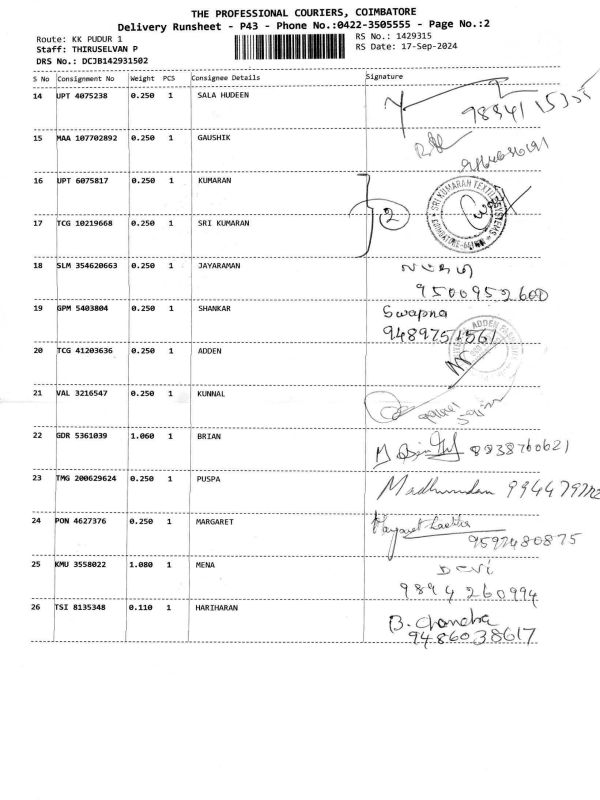 THE PROFESSIONAL COURIERS, COIMBATORE
Delivery Runsheet - P43 - Phone No.:0422-3505555 - Page No.:2
Route: KK PUDUR 1
RS No.: 1429315
Staff: THIRUSELVAN P
RS Date: 17-Sep-2024
DRS No.: DCJB142931502
S No Consignment No Weight PCS Consignee Details Signature
14 UPT 4075238 0.250 1 SALA HUDEEN
15 MAA 107702892 0.250 1 GAUSHIK
16 UPT 6075817 0.250 1 KUMARAN
2
SRI KUMARAN TEXTILE SYSTEMS
17 TCG 10219668 0.250 1 SRI KUMARAN
18 SLM 354620663 0.250 1 JAYARAMAN
9500952600
19 GPM 5403804 0.250 1 SHANKAR Swapna
9489751561
20 TCG 41203636 0.250 1 ADDEN
ADDEN
21 VAL 3216547 0.250 1 KUNNAL
22 GDR 5361039 1.060 1 BRIAN 8838760621
23 TMG 200629624 0.250 1 PUSPA
24 PON 4627376 0.250 1 MARGARET Margaret
9597480875
25 KMU 3558022 1.080 1 MENA Devi
9894260994
26 TSI 8135348 0.110 1 HARIHARAN B. Chandra
9486038617